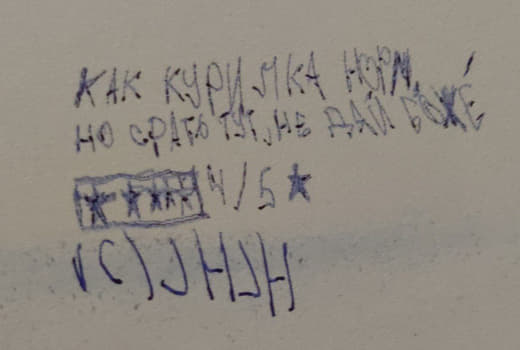 КАК КУРИЛКА НОРМ,
НО СРАТЬ ТУТ, НЕ ДАЙ БОЖЕ
★ ★★★★ 4/5 ★
(C)